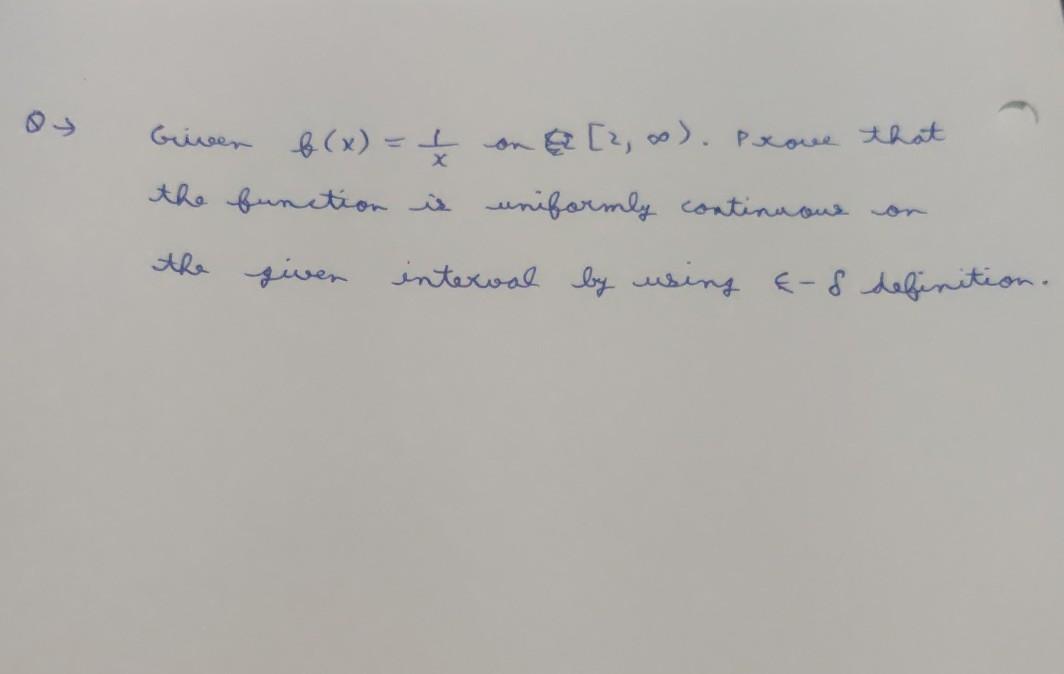 Q → Given f(x) = 1/x on [2, ∞). Prove that
the function is uniformly continuous on
the given interval by using ε-δ definition.